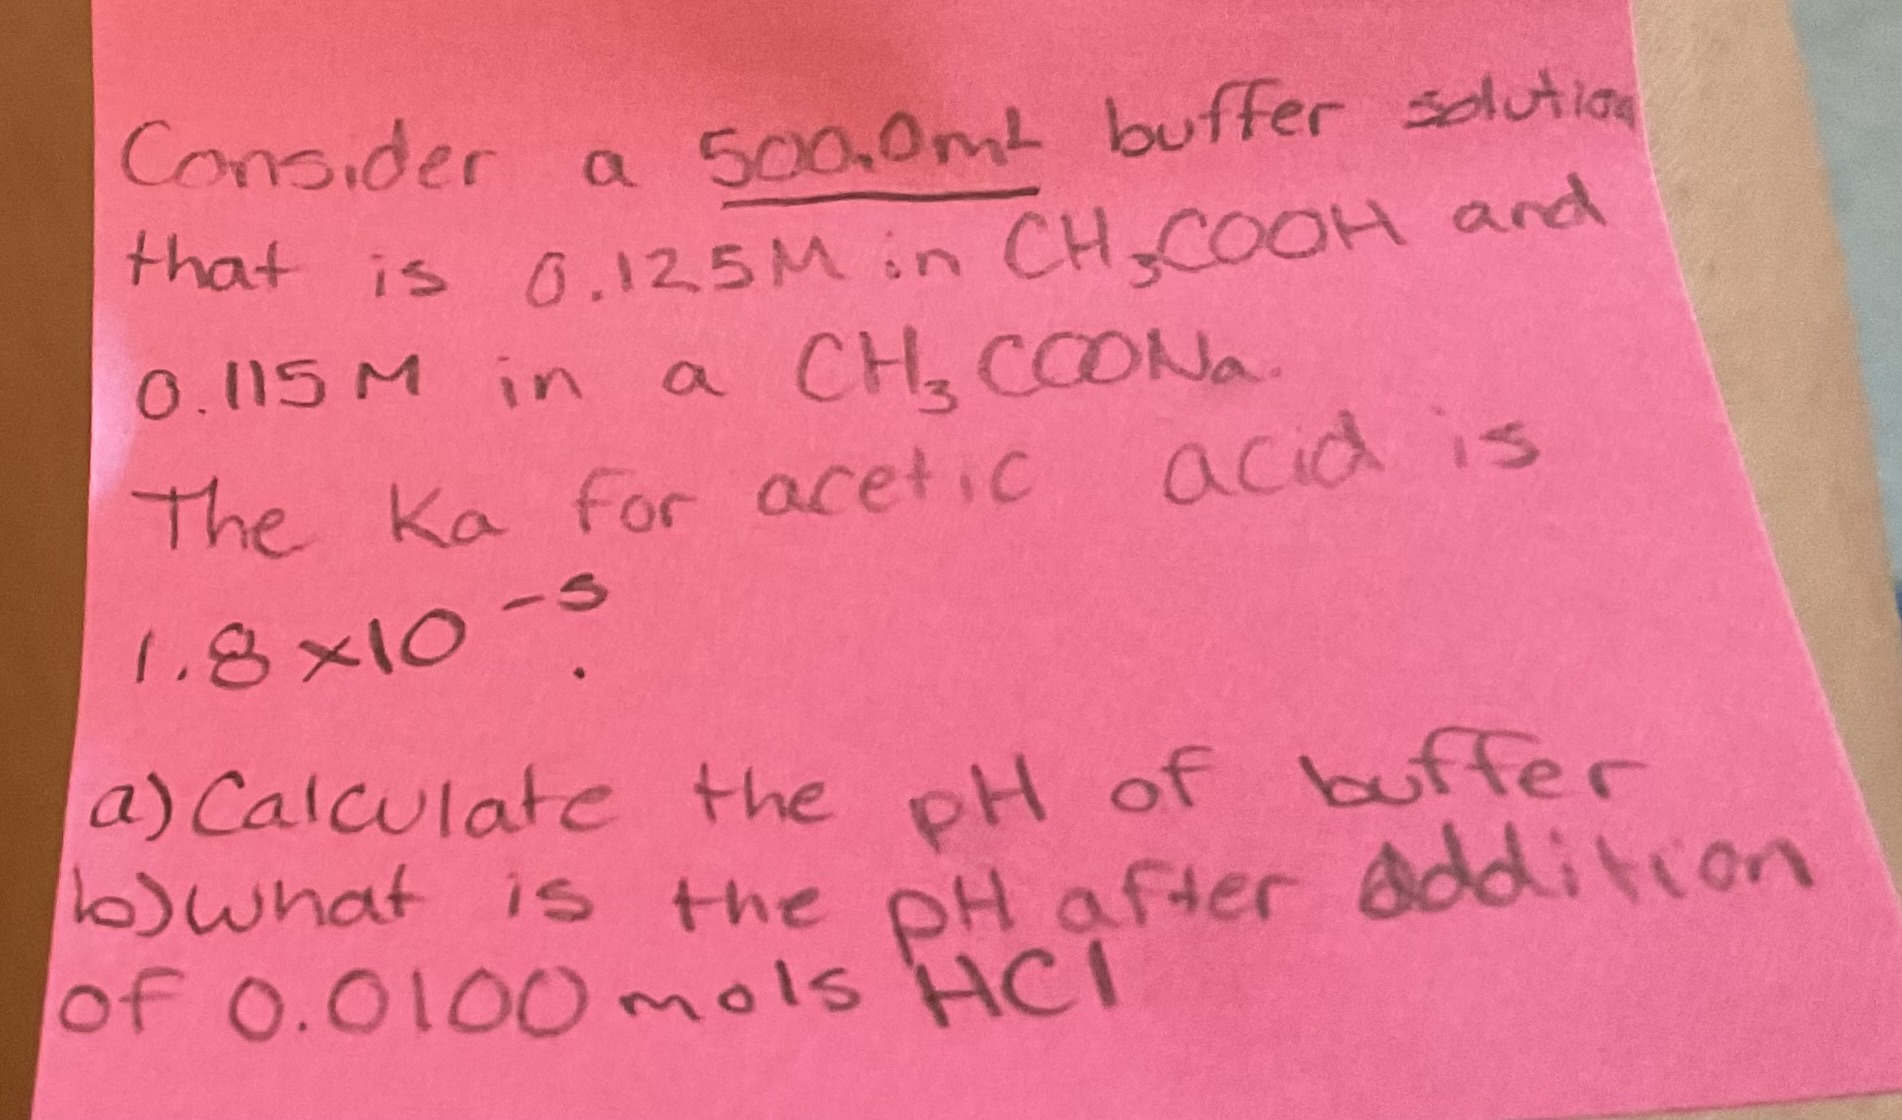 Consider a 500.0mL buffer solution
that is 0.125M in CH₃COOH and
0.115M in a CH₃COONa.
The Ka for acetic acid is
1.8x10⁻⁵.
a) Calculate the pH of buffer
b) What is the pH after addition
of 0.0100 mols HCl